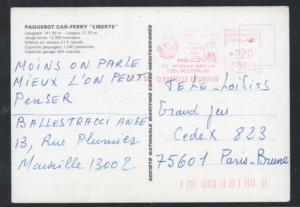 PAQUEBOT CAR-FERRY "LIBERTE"
Longueur 141,46 m - Largeur 21,90 m
Jauge brute 12.000 tonneaux
Vitesse en service 21,5 nœuds
Capacité passagers 1.245 personnes
Capacité garage 440 voitures
MOINS ON PARLE
MIEUX L'ON PEUT
PENSER
BALLESTRACCI ANGE
13, Rue Plumier
Marseille 13002
SOCIÉTÉ NATIONALE MARITIME CORSE-MÉDITERRANÉE
0220
TELE-Loisirs
Grand jeu
Cedex 823
75601 Paris-Brune